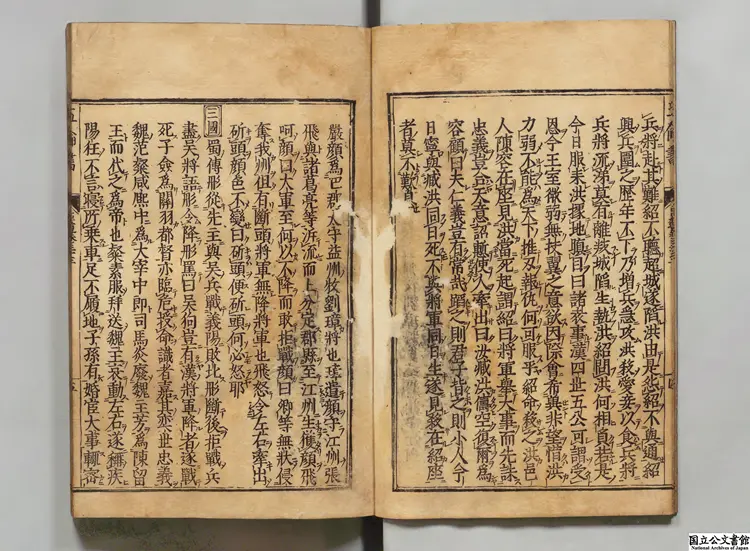 兵將赴其難紹不聽超城遂陷洪由是怨紹不與通紹
興兵圍之歷年不下乃增兵急攻洪殺愛妾以食兵將
兵將流涕莫有離叛城陷生執洪紹問洪何相負若是
今日服未洪據地瞋目曰諸袁事漢四世五公可謂受
恩今王室衰弱無扶翼之意欲因際會希冀非望惜洪
力弱不能爲天下推刃報仇何可服乎紹命殺之洪邑
人陳容在座見洪當死起謂紹曰將軍舉大事而先誅
忠義豈合天意紹慚使人牽出曰汝臧洪儔空復爾爲
容顧曰夫仁義豈有常哉蹈之則君子背之則小人今
日寧與臧洪同日死不與將軍同日生遂見殺在紹座
者莫不歎息
嚴顏爲巴郡太守益州牧劉璋將也璋遣顏守江州張
飛與諸葛亮等泝流而上分定郡縣至江州生獲顏飛
呵顏曰大軍至何以不降而敢拒戰顏曰卿等無狀侵
奪我州但有斷頭將軍無降將軍也飛怒令左右牽出
斫頭顏色不變曰斫頭便斫頭何必怒耶
三國 蜀傅肜從先主與吳兵戰義陽敗北肜斷後拒戰兵
盡吳將語肜令降肜罵曰吳狗豈有漢將軍降者遂戰
死子僉爲關羽都督亦臨危授命識者嘉其奕世忠義
魏范粲咸熙中爲太宰中郎司馬炎廢魏王芳爲陳留
王而代之爲帝也粲素服拜送魏王哀動左右遂稱疾
陽狂不言寢所乘車足不履地子孫有婚宦大事輒密
国立公文書館
National Archives of Japan